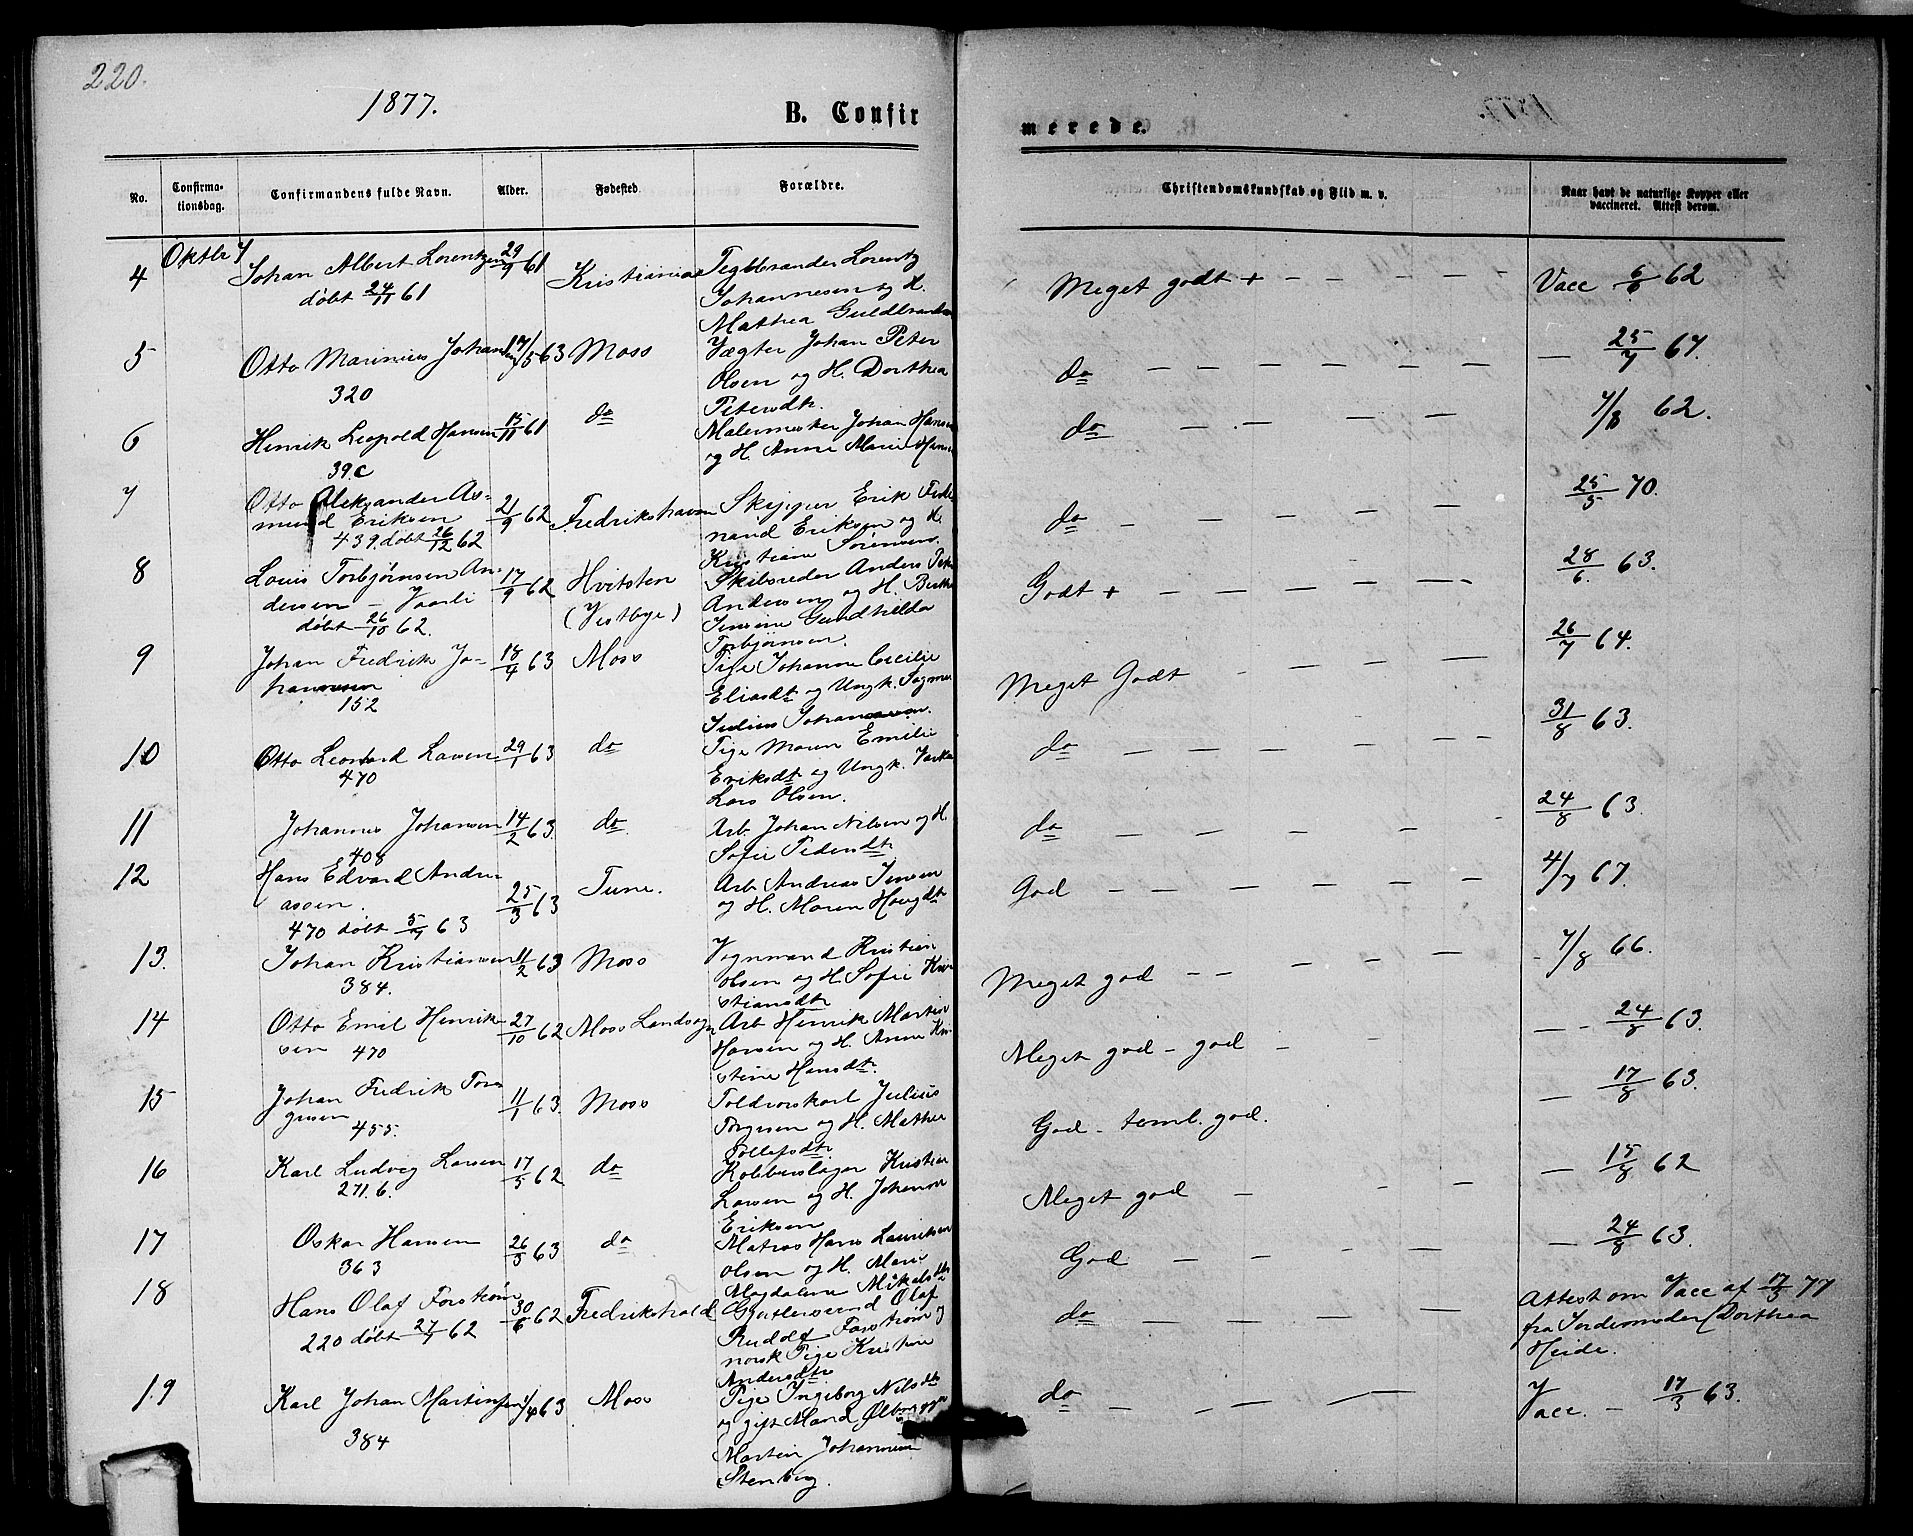 220.
1877.
B. Confir
merede.
No.
Confirma-
tionsdag.
Confirmandens fulde Navn.
Alder.
Fødested.
Forældre.
Christendomskundskab og Flid m. v.
Naar havt de naturlige Kopper eller
vaccineret. Attest derom.
Oktbr 7
4 Johan Albert Lorentzen 29/9 61 Kristiania Teglbrænder Lorentz
døbt 24/11 61 Johannesen og H.
Mathea Guldbrands
Meget godt + — — — — Vacc 6/6 62
5 Otto Marinius Johansen 17/5 63 Moss Vægter Johan Peter
320 Olsen og H. Dorthea
Petersdtr.
do — — — — — — 25/7 67.
6 Henrik Leopold Hansen 15/11 61 do Malermester Johan Hansen
39.c og H. Anne Marie
do — — — — 7/8 62.
7 Otto Aleksander As-
mund Eriksen 21/9 62 Fredrikshavn Skipper Erik Ferdi
439. døbt 26/12 62 nand Eriksen og H.
Kristiane Sørensen.
do — — — — — 25/5 70.
8 Louis Torbjørnsen An-
dersen — Vaarli 17/9 62 Hvitsten Skibsreder Anders
døbt 26/10 62. (Vestbye) Andersen og H. Berthe
Jensine Gundhilda
Torbjørnsen.
Godt + — — — — — 28/6. 63.
9 Johan Fredrik Jo-
hannesen 18/4 63 Moss Pige Johanne Cecilie
152 Eliasdtr og Ungk.
Julius Johannesen.
Meget Godt — — — — 26/7 64.
10 Otto Leonard Larsen 29/1 63 do Pige Maren Emilie
470 Eriksdtr og Ungk.
Lars Olsen.
do — — — — — 31/8 63.
11 Johannes Johansen 14/2 63 do. Arb. Johan Nilsen og H.
408 Sofie Pedersdtr
do — — — — 24/8 63.
12 Hans Edvard Andre
assen. 25/3 63 Tune. Arb. Andreas Jensen
470 døbt 5/7 63 og H. Maren
God — — — — — 4/7 67.
13. Johan Kristiansen 11/2 63 Moss Vognmand Kristian
384. Olsen og H. Sofie Kri
stiansdtr
Meget god — — — — — 7/8 66.
14 Otto Emil Henrik-
sen 27/10 62 Moss Landsogn Arb Henrik Martin
470 Hansen og H. Anne Kri
stine Hansdtr.
Meget god - god — — 24/8 63.
15 Johan Fredrik Tor
gersen 11/1 63. Moss Toldrorskarl Julius
455. Torgersen og H. Mathea
Tollefsdtr.
God - teml. god. — 17/8 63.
16 Karl Ludvig Larsen 17/5 62 do Kobberslager Kristian
271.6. Larsen og H. Johanne
Eriksen
Meget god — — — 15/8 62
17 Oskar Hansen 26/3 63 do Matros Hans Lauritsen
363 Olsen og H. Marie
Magdalene Mikalsdtr
God — — — — 24/8 63.
18 Hans Olaf Forstrøm 30/6 62 Fredrikshald Gjørtlersvend Olaf
220 døbt 27/7 62 Rudolf Forstrøm og
norsk Pige Kristine
Andersdtr
do — — — — Attest om Vacc af 17/3 77
fra Jordemoder Dorthea
Heide.
19 Karl Johan Martinsen 1/4 63 Moss Pige Ingeborg Nilsdtr
384 og gift Mand Ølbrygger
Martin Johannesen
Stenberg.
do — — — — Vacc. — 17/3 63.